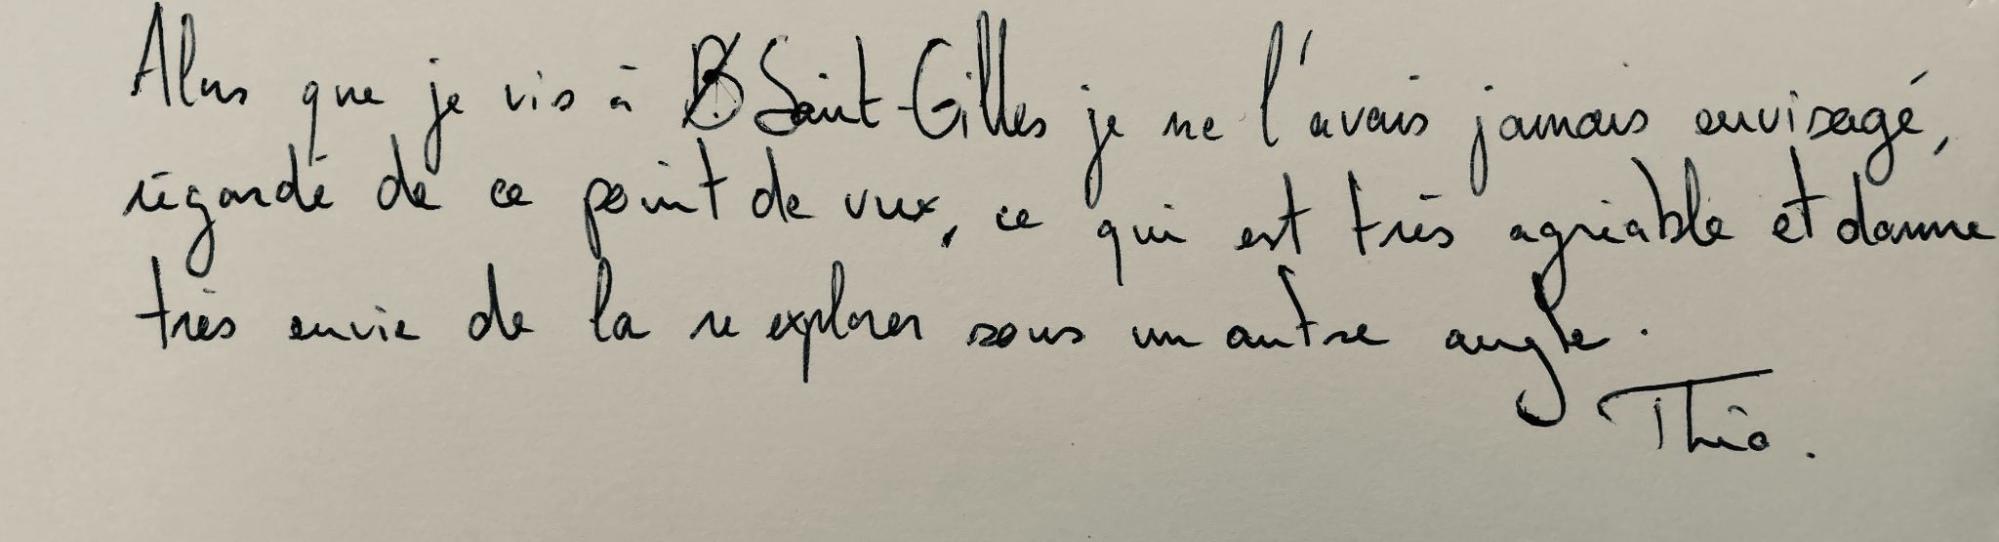 Alors que je vis à Saint-Gilles je ne l'avais jamais envisagé,
regardé de ce point de vue, ce qui est très agréable et donne
très envie de la re explorer sous un autre angle.
Théo.